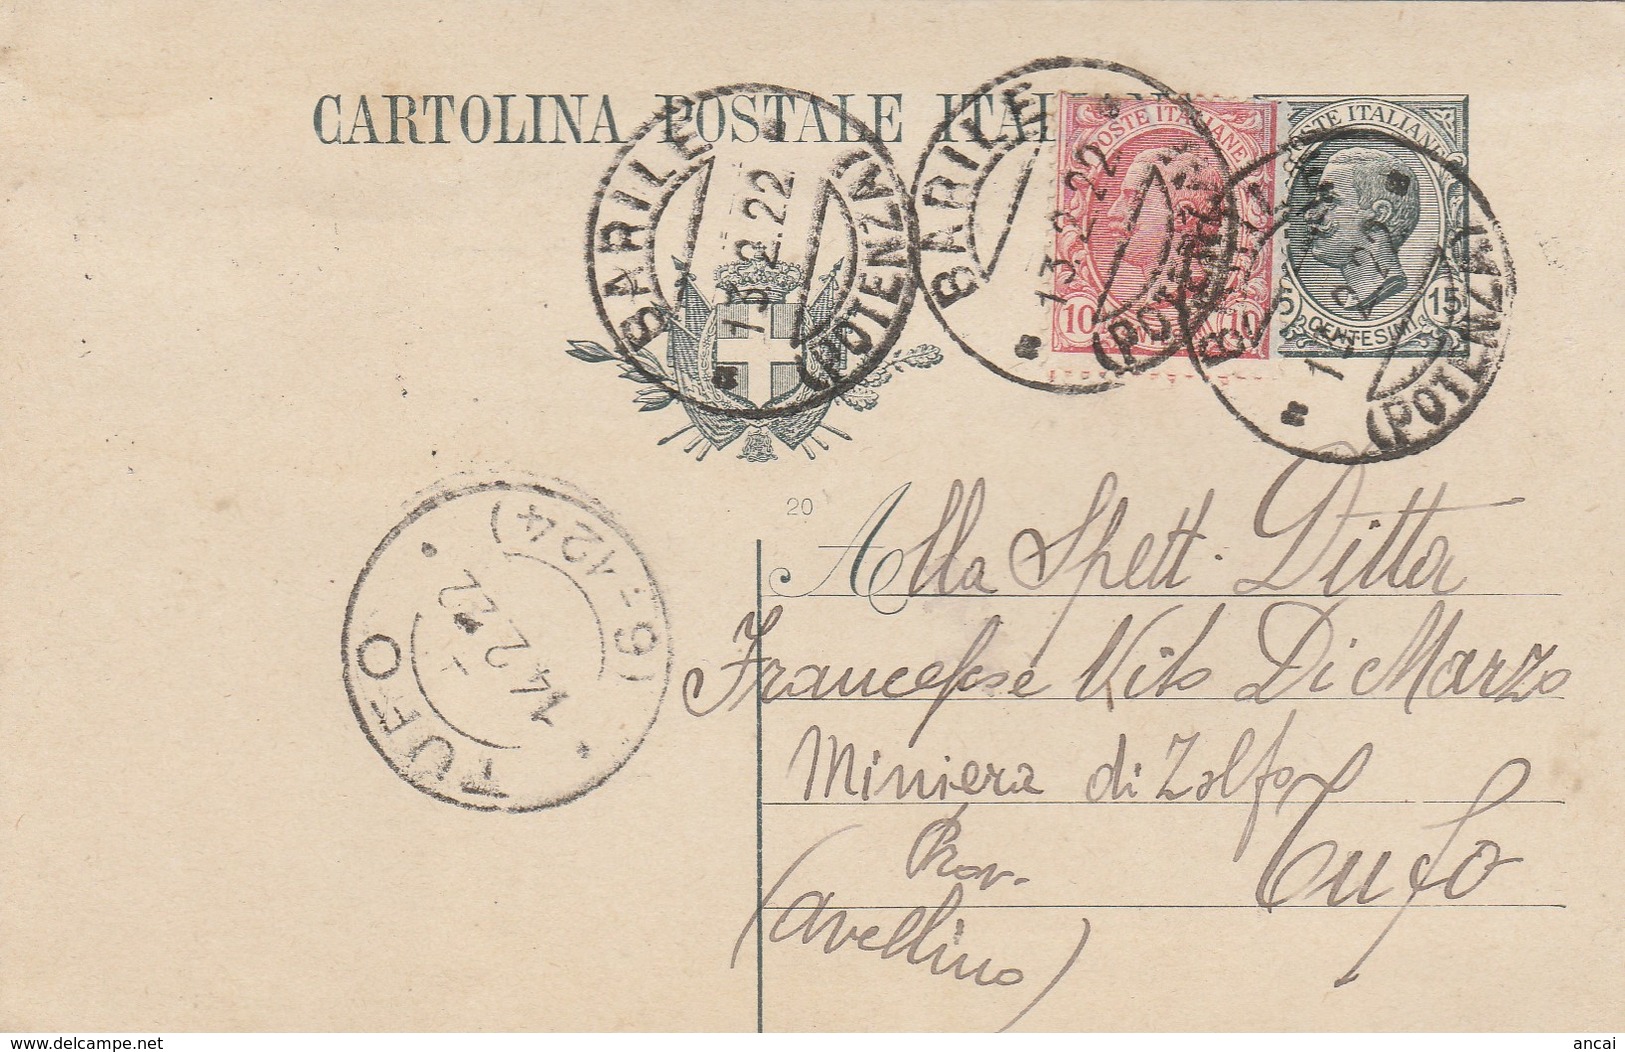 CARTOLINA POSTALE ITALIANA
BARILE
13.2.22
(POTENZA)
BARILE
13.2.22
(POTENZA)
POSTE ITALIANE
10
10
POSTE ITALIANE
15
CENTESIMI
(POTENZA)
20
TUFO
14.2.22
(6-124)
Alla Spett. Ditta
Francesco Vito Di Marzo
Miniera di Zolfo
Prov.
Tufo
(Avellino)
www.delcampe.net
ancai